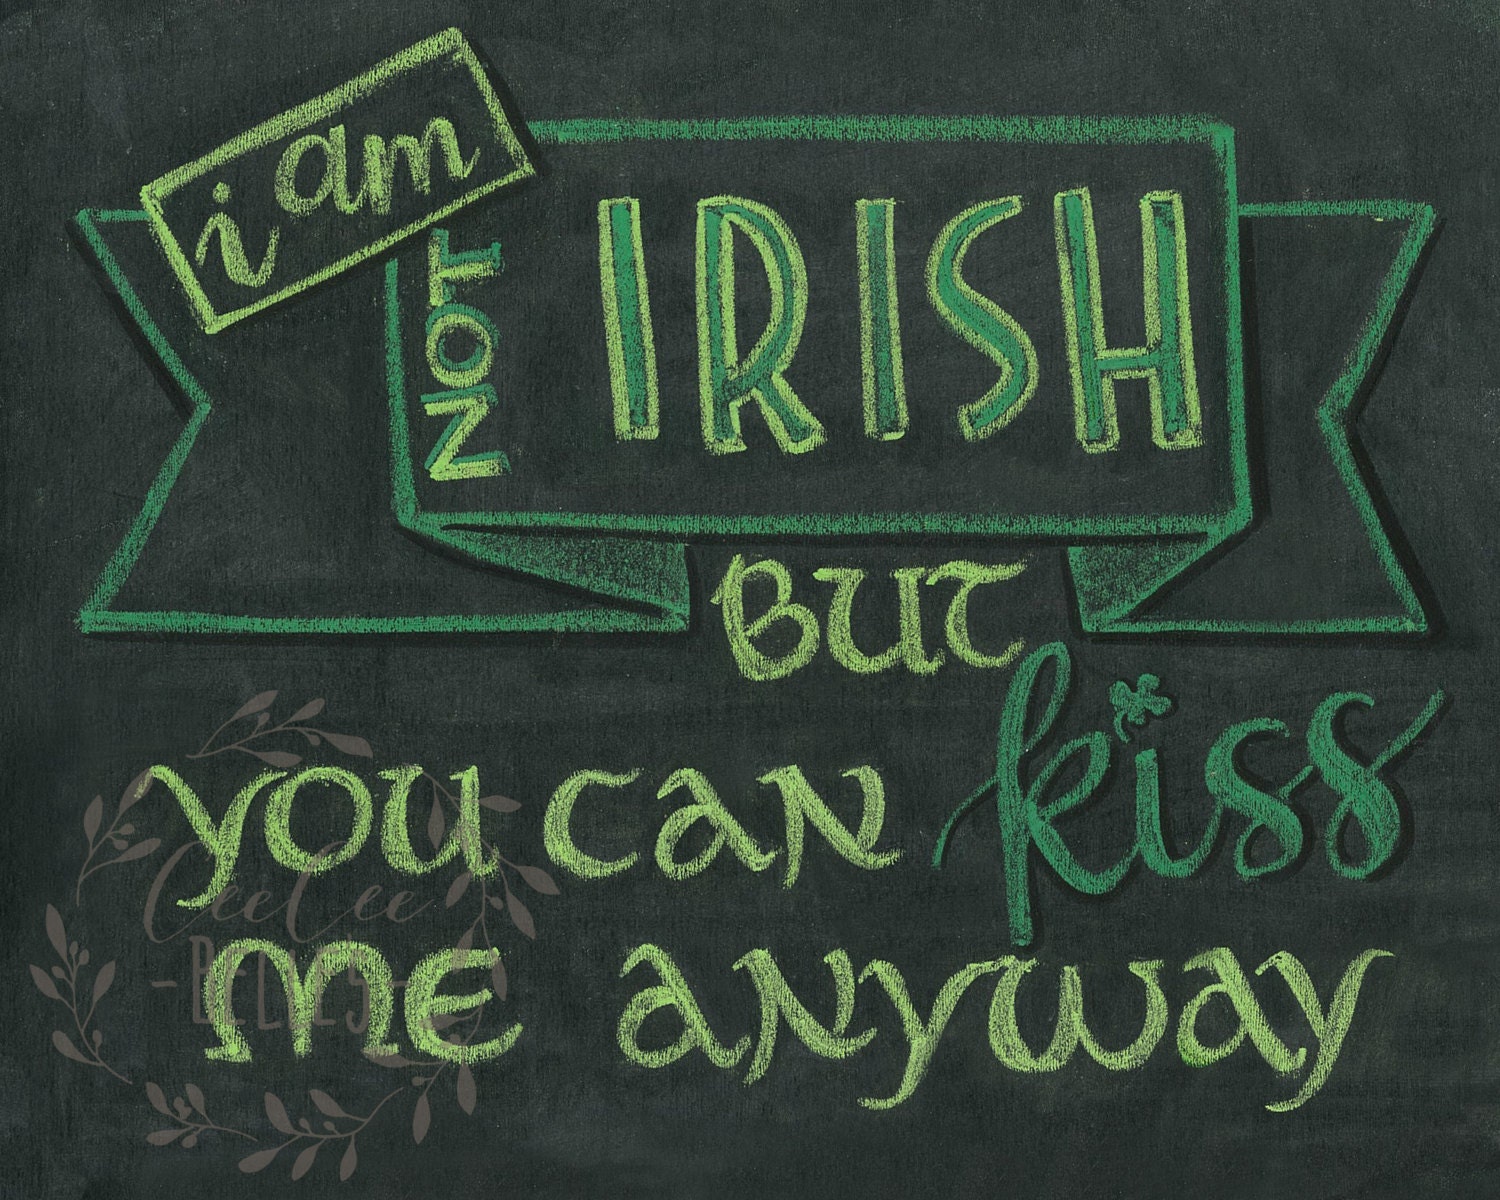 i am
NOT
IRISH
BUT
YOU CAN kiss
ME ANYWAY
CeeCee
- BELLES -